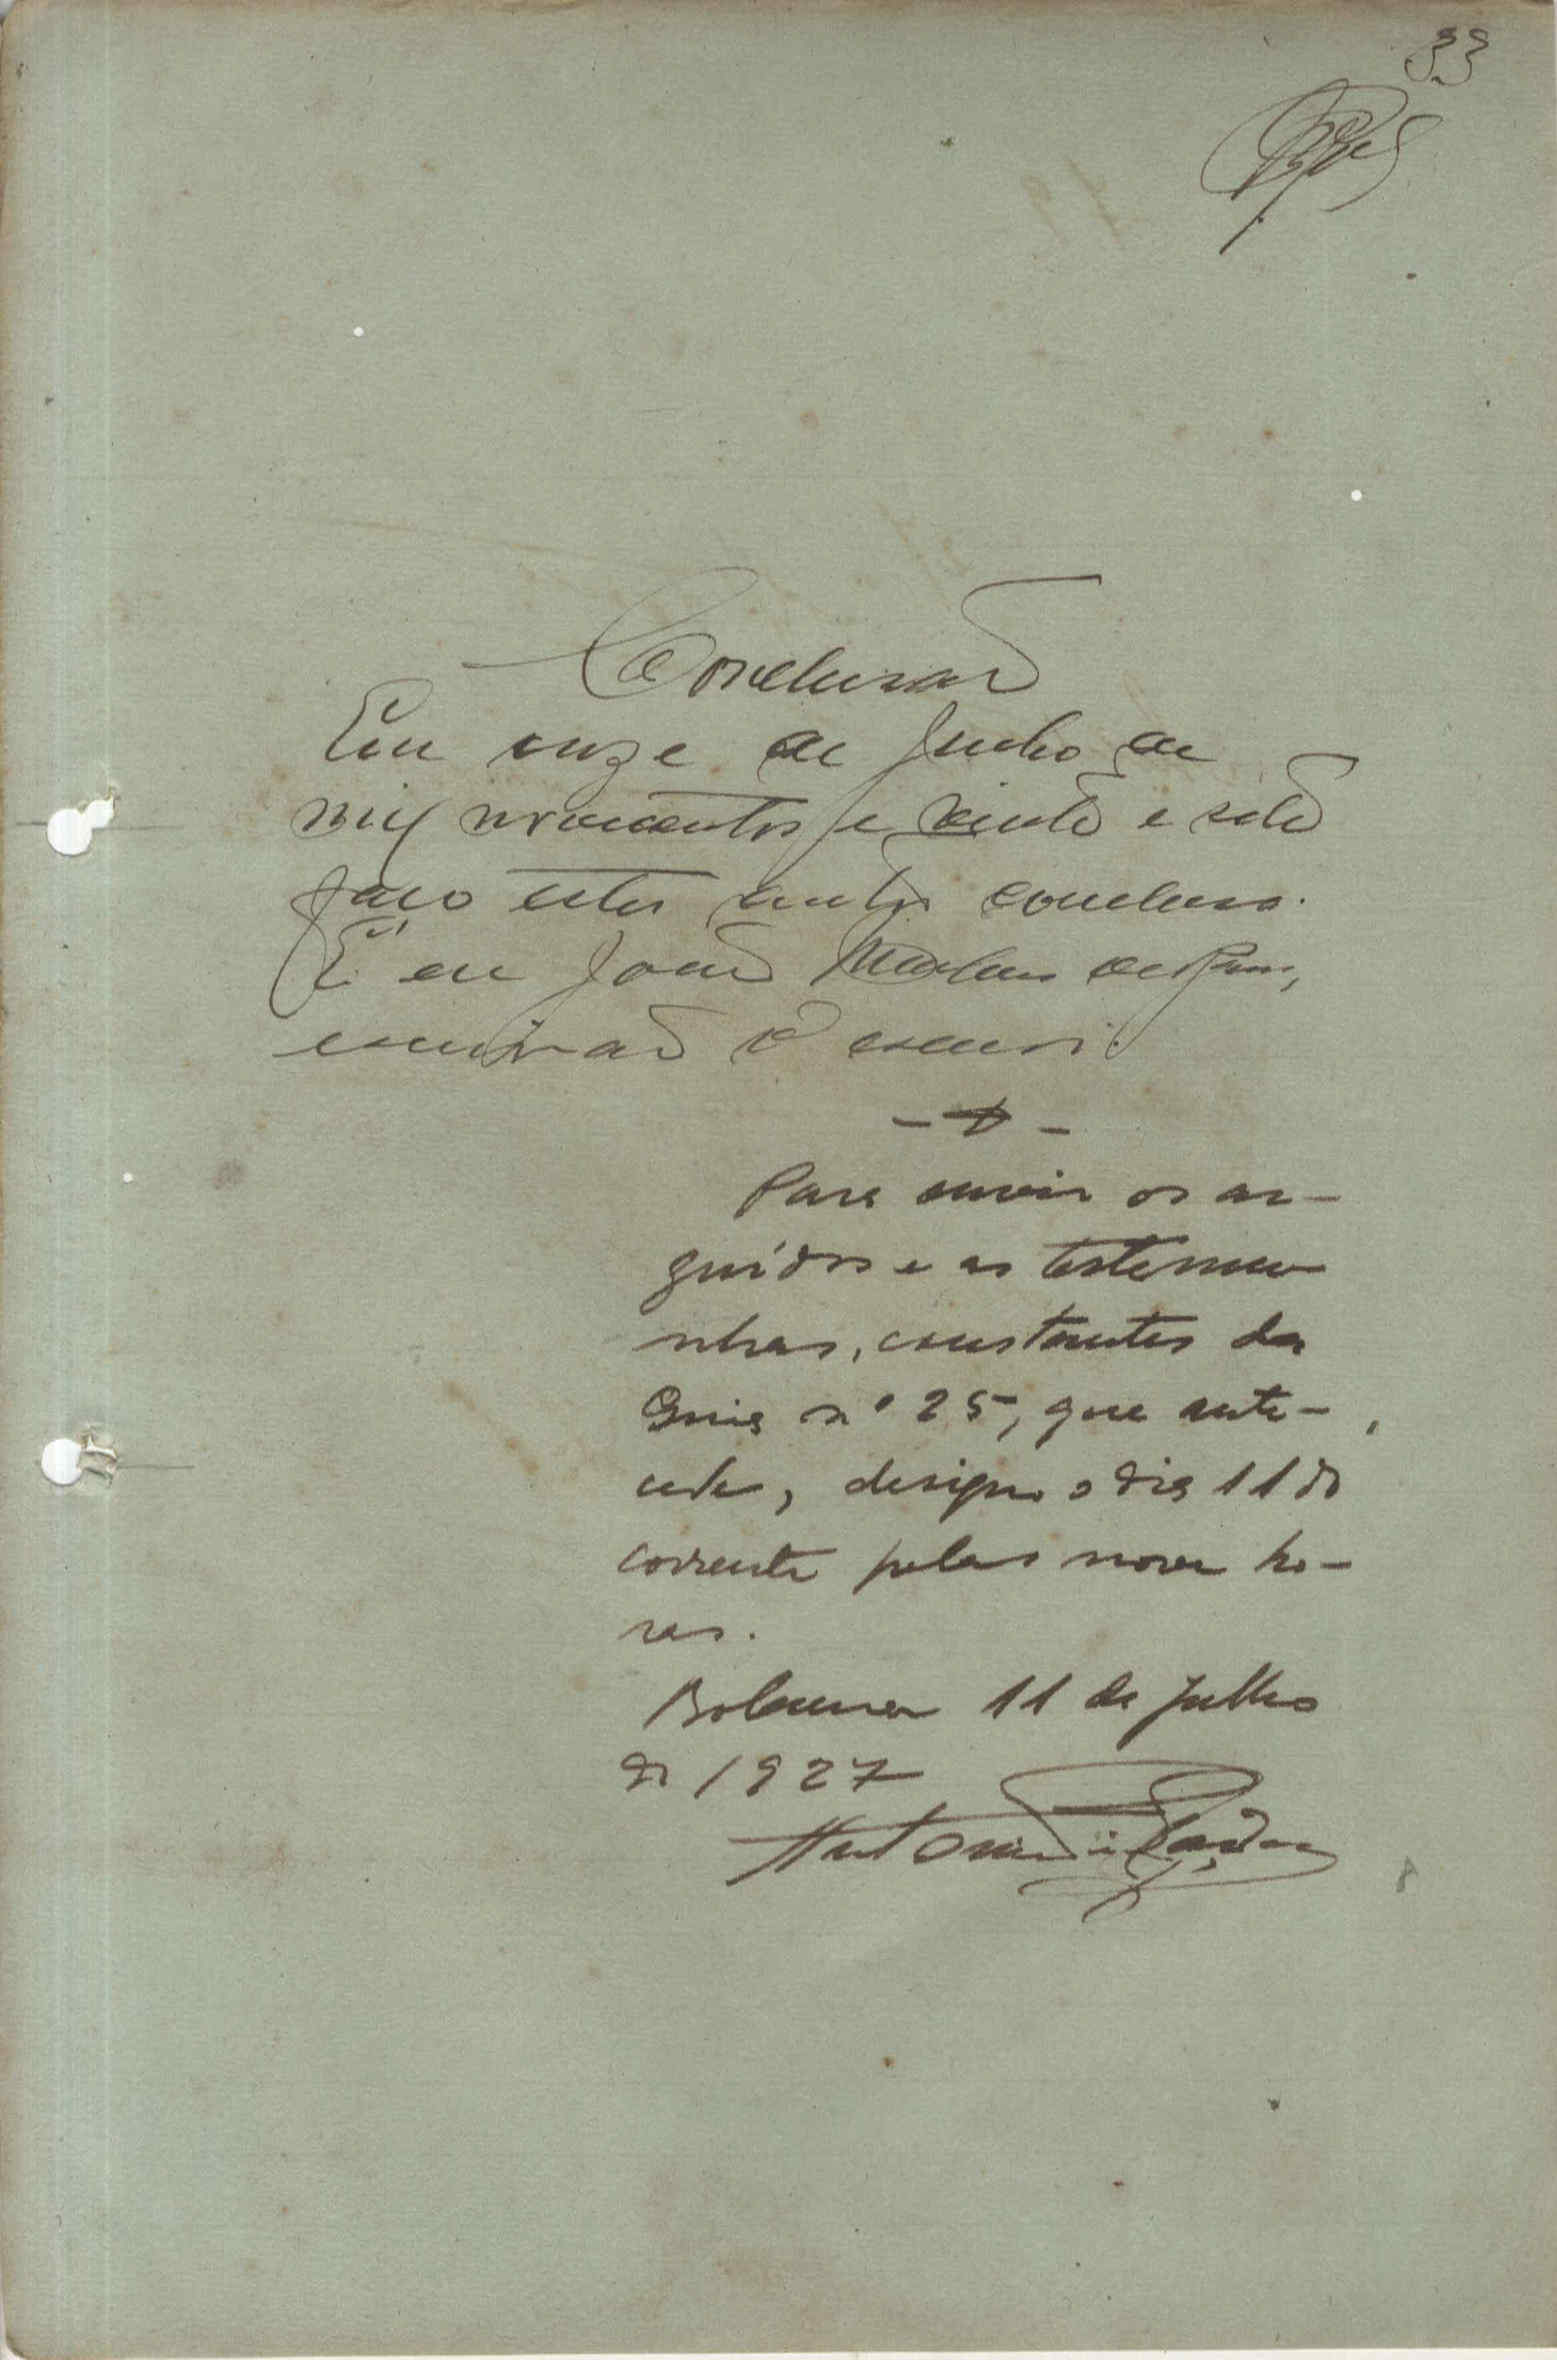 33
Conclusão
Em onze de Junho de
mil novecentos e vinte e sete
faço estes autos conclusos.
E eu João
escrivão o escrevi.
— D —
Para ouvir os ar-
guidos e as testemu
nhas, constantes da
Guia nº 25, que ante-
cede, designo o dia 11 do
corrente pelas nove ho-
ras.
Bolama 11 de Julho
de 1927
Antonio